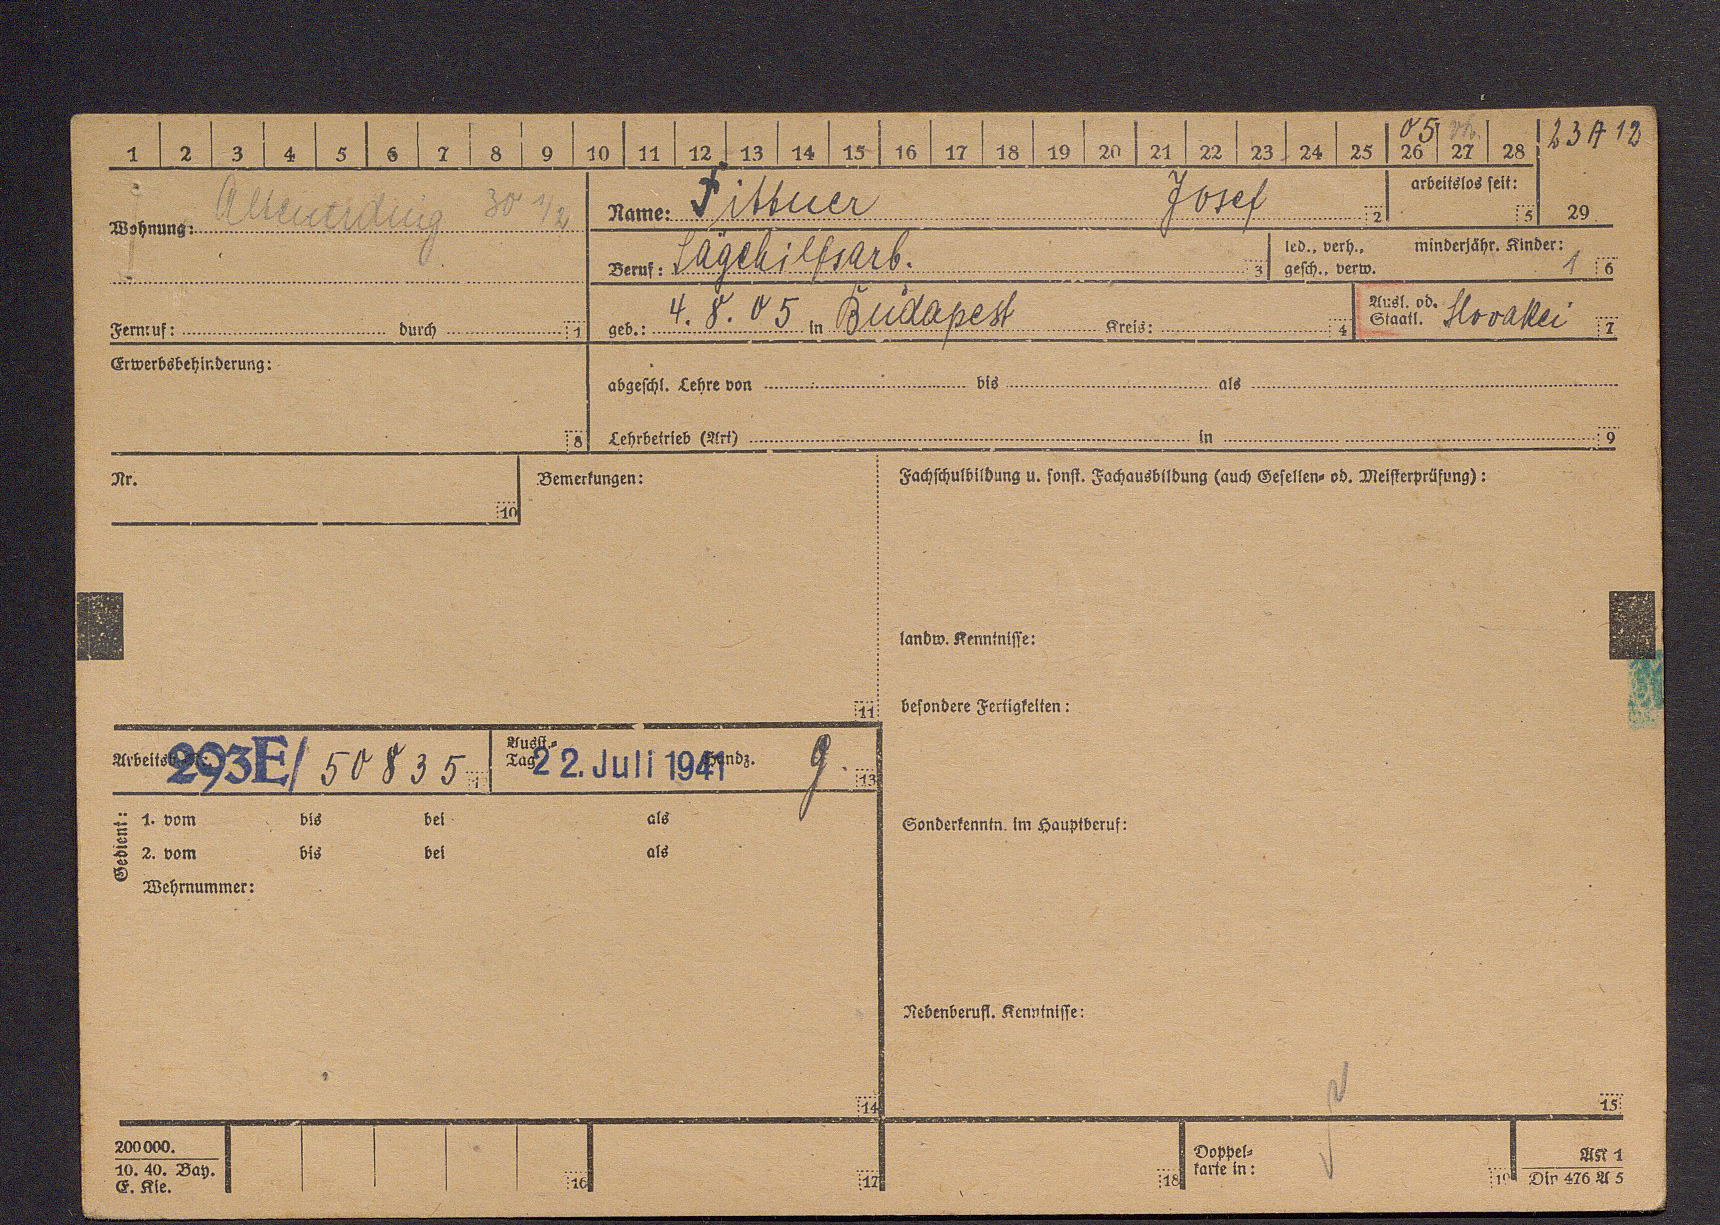 05 vh. 23 A 12
1 2 3 4 5 6 7 8 9 10 11 12 13 14 15 16 17 18 19 20 21 22 23 24 25 26 27 28
Wohnung: Altenerding 30 1/2
Name: Josef 2
arbeitslos seit: 5
29
Beruf: Sägehilfsarb. 3
led., verh., minderjähr. Kinder:
gesch., verw. 1 6
Fernruf: durch 1
geb.: 4. 8. 05 in Budapest Kreis: 4
Ausl. od.
Staatl. Slovakei 7
Erwerbsbehinderung:
8
abgeschl. Lehre von bis als
Lehrbetrieb (Art) in 9
Nr.
10
Bemerkungen:
11
Fachschulbildung u. sonst. Fachausbildung (auch Gesellen- od. Meisterprüfung):
landw. Kenntnisse:
besondere Fertigkeiten:
293E/ 50835
Ausst.-
Tag 22. Juli 1941 Handz. g. 13
Gedient:
1. vom bis bei als
2. vom bis bei als
Wehrnummer:
14
Sonderkenntn. im Hauptberuf:
Nebenberufl. Kenntnisse:
15
200000.
10. 40. Bay.
E. Kie.
16
17
18
Doppel-
karte in:
19
AK 1
Din 476 A 5